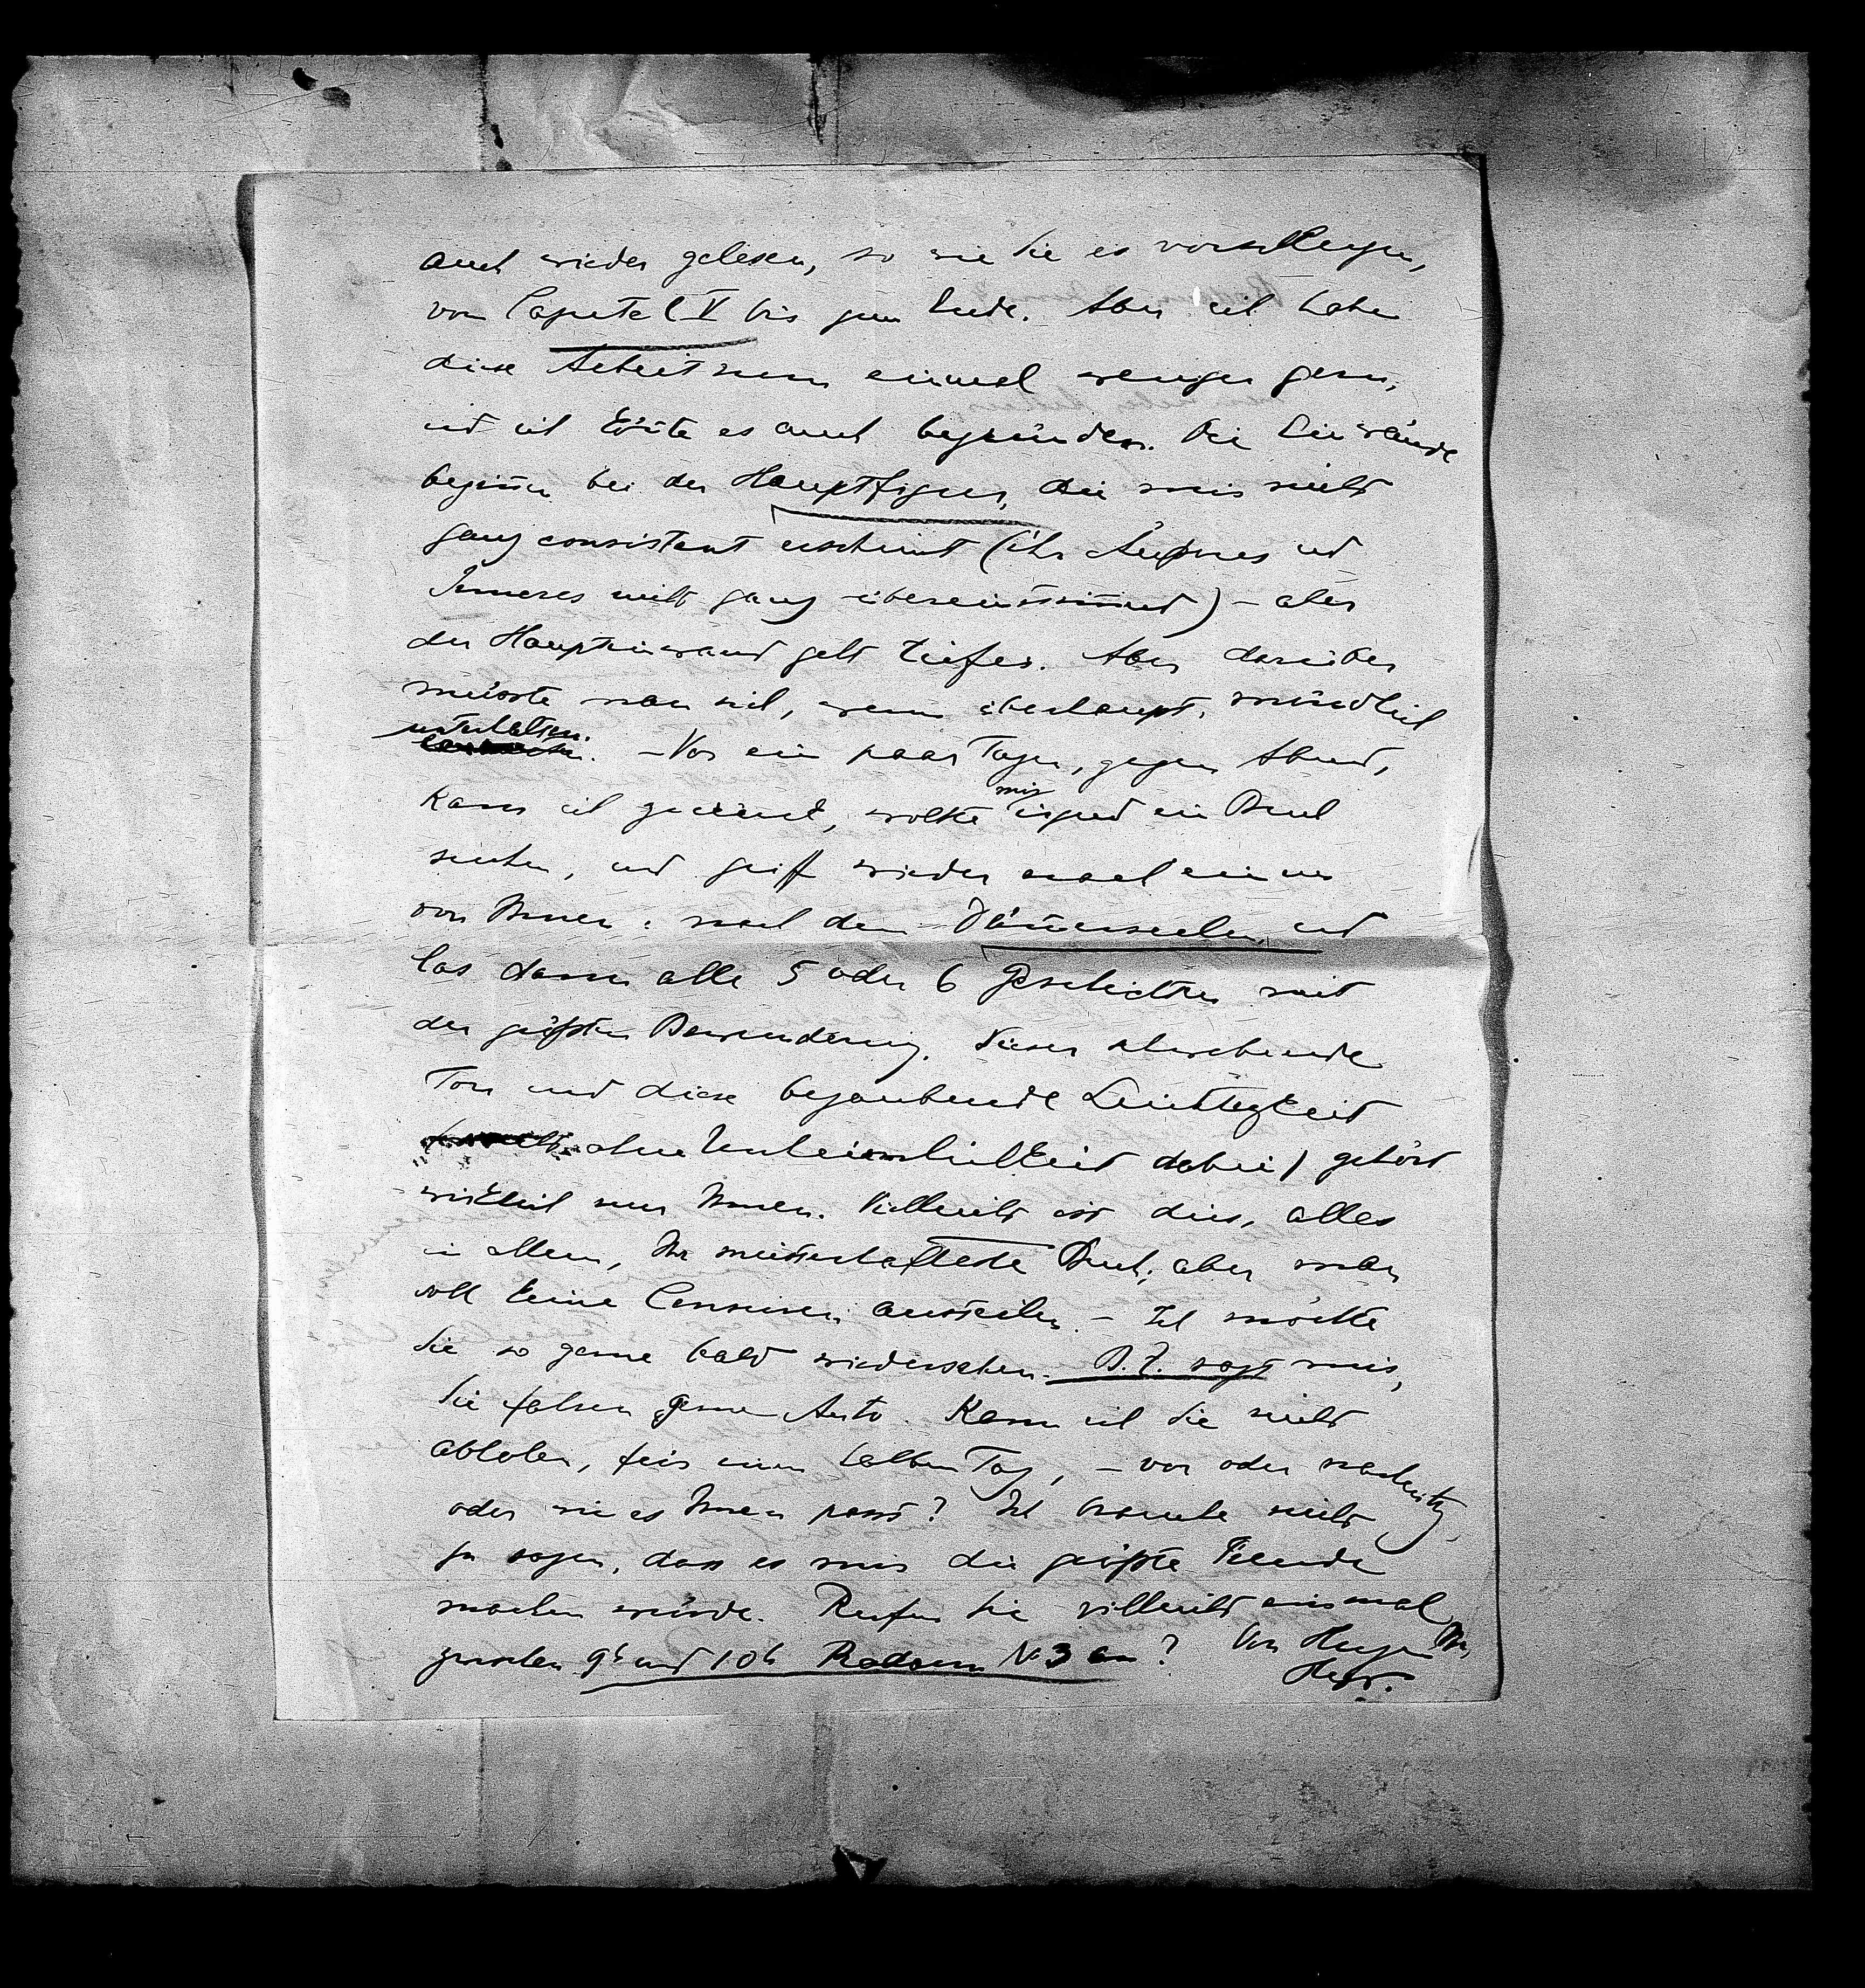 auch wieder gelesen, so wie Sie es vorschlugen,
von Capitel V bis zum Ende. Aber ich habe
diese Arbeit nun einmal weniger gern,
und ich kön̄te es auch begründen. Die Einwände
begin̄en bei der Hauptfigur, die mir nicht
ganz consistent erscheint (ihr Äußeres und
Inneres nicht ganz übereinstim̄end) – aber
der Haupteinwand geht tiefer. Aber darüber
müsste man sich, wenn überhaupt, mündlich
unterhalten. – Vor ein paar Tagen, gegen Abend,
kam ich zurück, wollte mir irgend ein Buch
suchen, und griff wieder nach einem
von Ihnen: nach den Däm̄erseelen und
las dann alle 5 oder 6 Geschichten mit
der größten Bewunderung. Dieser schwebende
Ton und diese bezaubernde Leichtigkeit
ohne Unheimlichkeit dabei) gehört
wirklich nur Ihnen. Vielleicht ist dies, alles
in allem, Ihr meisterhaftestes Buch; aber man
soll keine Censuren austeilen. – Ich möchte
Sie so gerne bald wiedersehen. B.Z. sagt mir,
Sie fahren gerne Auto. Kann ich Sie nicht
abholen, für einen halben Tag, – vor oder nachmittg,
oder wie es Ihnen passt? Ich brauche nicht
zu sagen, dass es mir die größte Freude
machen würde. Rufen Sie vielleicht einmal
zwischen 9h und 10h Rodaun N. 3 an? Von Herzen Ihr
Hofm.